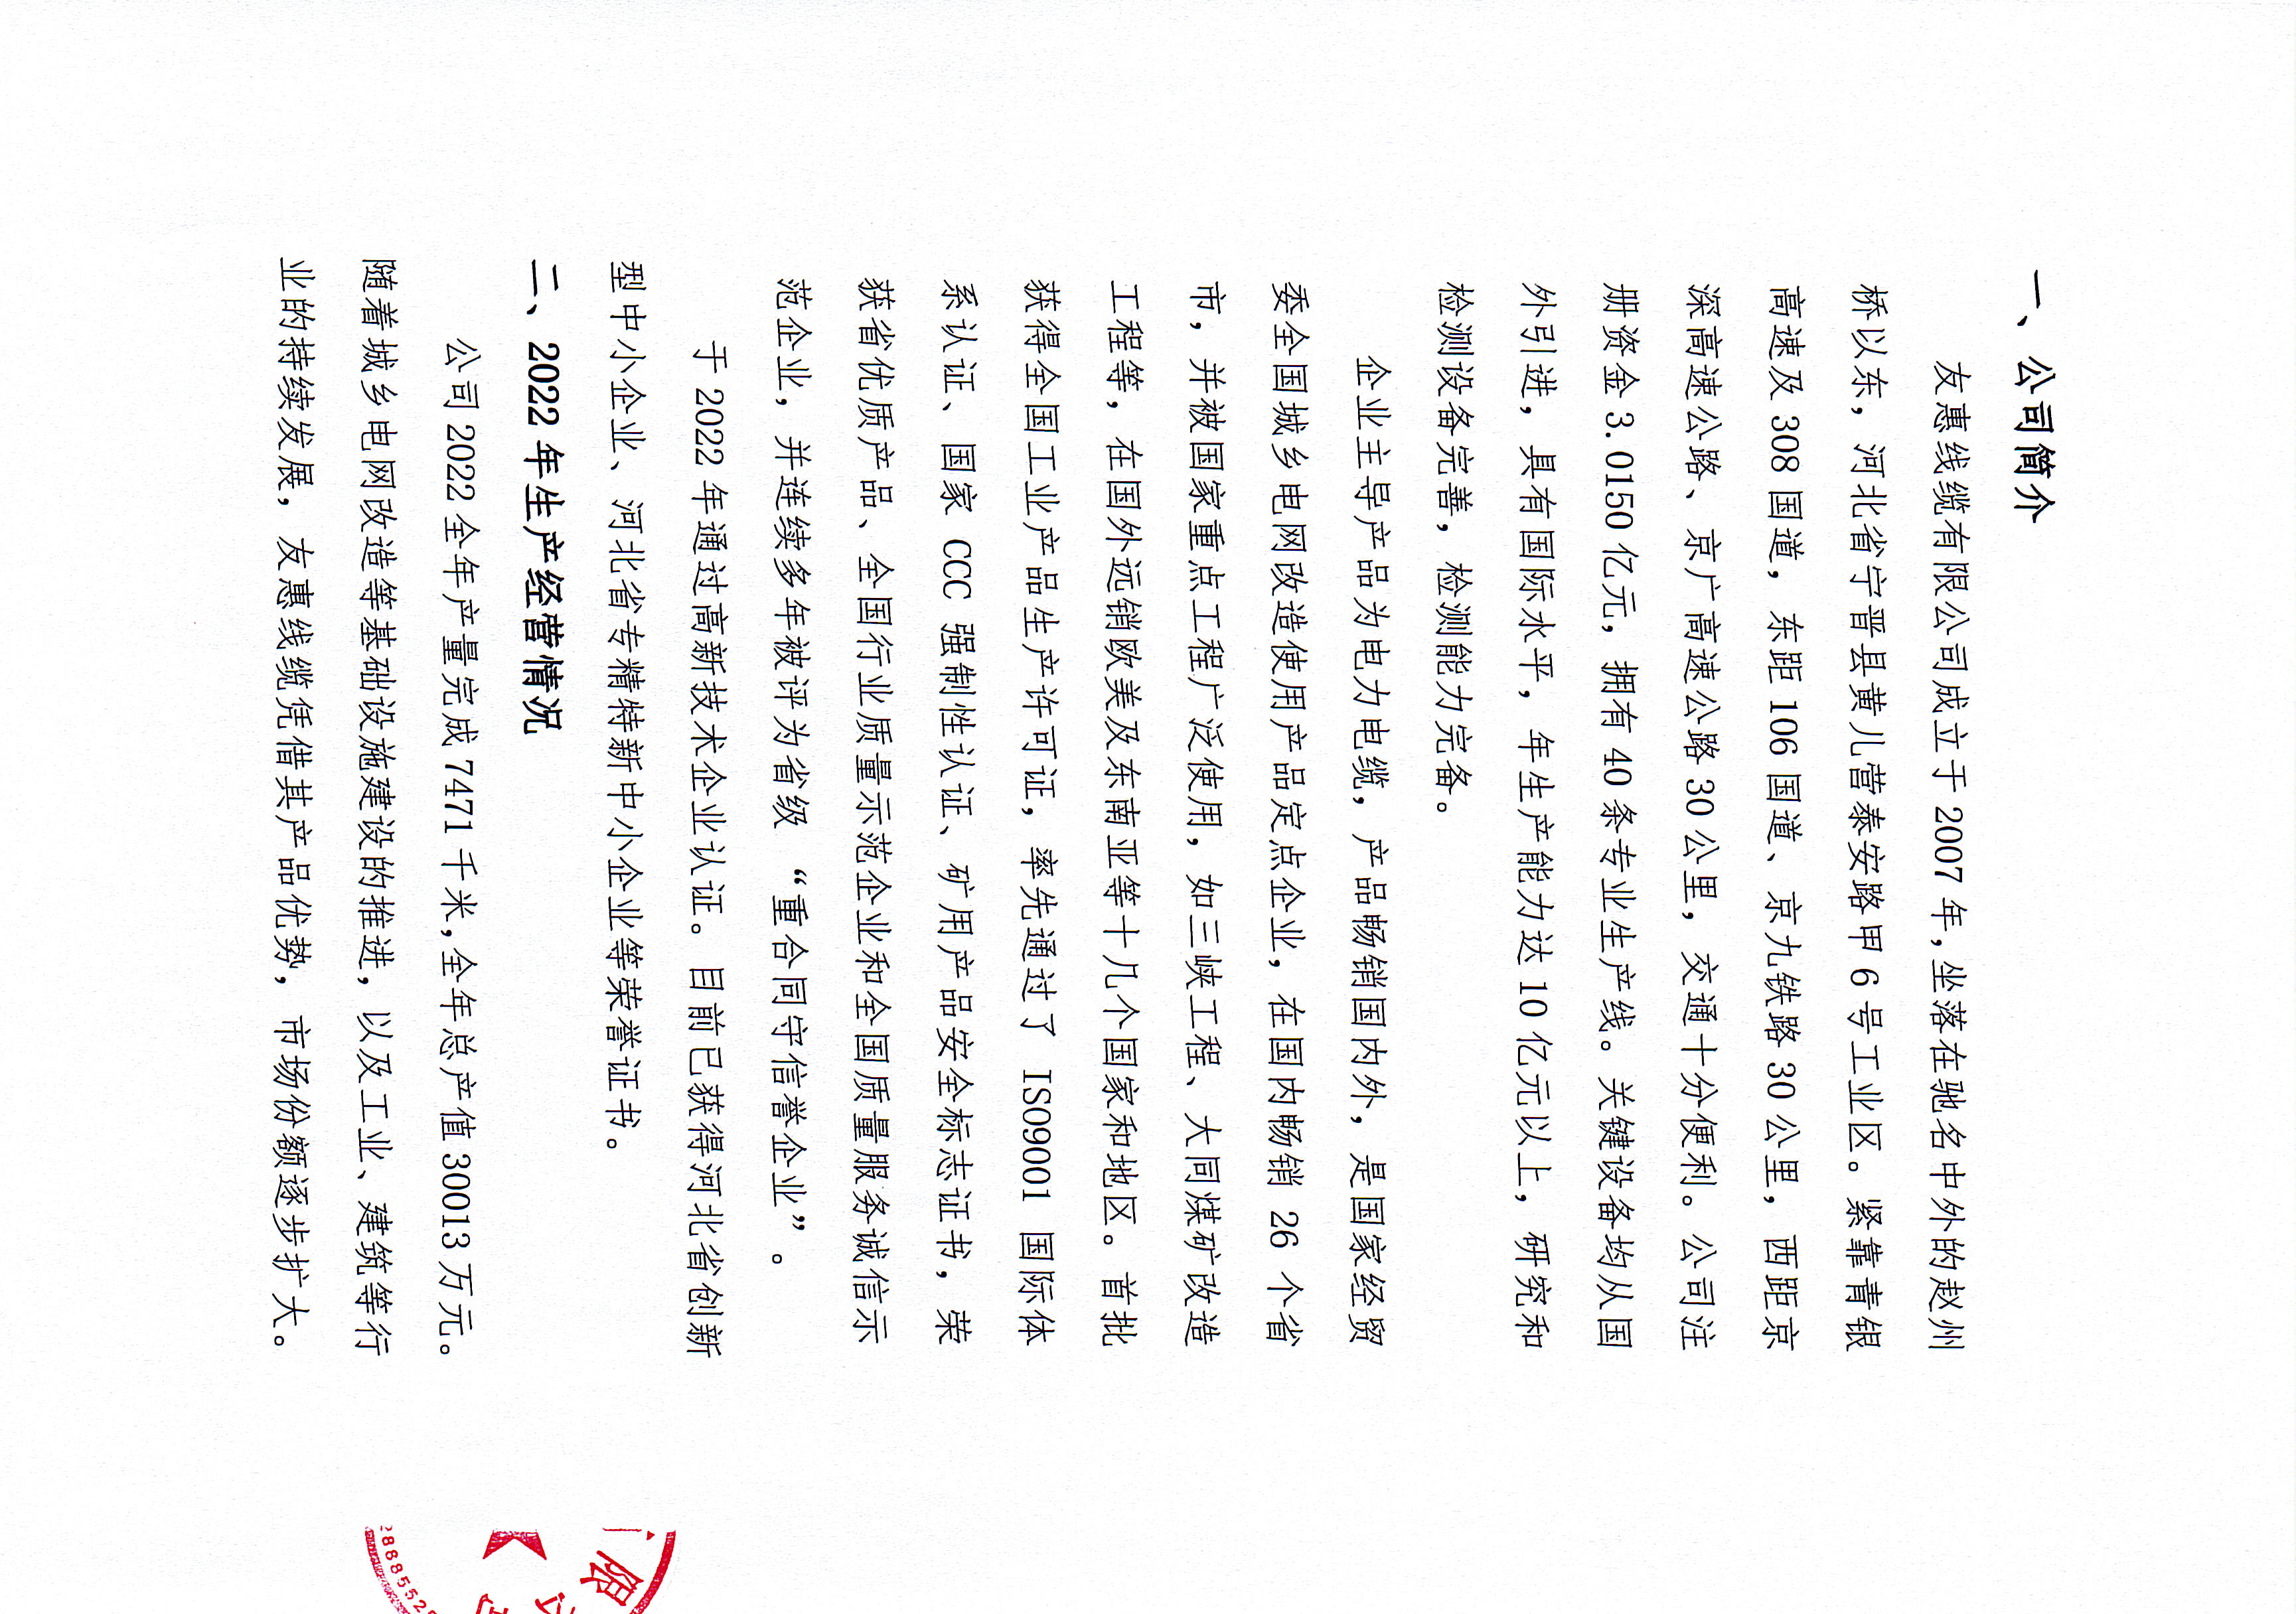 一、公司简介
友惠线缆有限公司成立于 2007 年,坐落在驰名中外的赵州
桥以东，河北省宁晋县黄儿营泰安路甲 6 号工业区。紧靠青银
高速及 308 国道，东距 106 国道、京九铁路 30 公里，西距京
深高速公路、京广高速公路 30 公里，交通十分便利。公司注
册资金 3.0150 亿元，拥有 40 条专业生产线。关键设备均从国
外引进，具有国际水平，年生产能力达 10 亿元以上，研究和
检测设备完善，检测能力完备。
企业主导产品为电力电缆，产品畅销国内外，是国家经贸
委全国城乡电网改造使用产品定点企业，在国内畅销 26 个省
市，并被国家重点工程广泛使用，如三峡工程、大同煤矿改造
工程等，在国外远销欧美及东南亚等十几个国家和地区。首批
获得全国工业产品生产许可证，率先通过了 ISO9001 国际体
系认证、国家 CCC 强制性认证、矿用产品安全标志证书，荣
获省优质产品、全国行业质量示范企业和全国质量服务诚信示
范企业，并连续多年被评为省级 “重合同守信誉企业”。
于 2022 年通过高新技术企业认证。目前已获得河北省创新
型中小企业、河北省专精特新中小企业等荣誉证书。
二、2022 年生产经营情况
公司 2022 全年产量完成 7471 千米,全年总产值 30013 万元。
随着城乡电网改造等基础设施建设的推进，以及工业、建筑等行
业的持续发展，友惠线缆凭借其产品优势，市场份额逐步扩大。
限